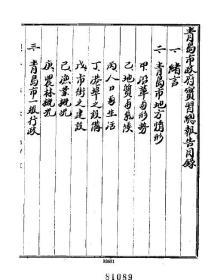 青島市政府實習總報告目錄
一 緒言
二 青島市地方情形
甲 沿革與形勢
乙 地質與氣候
丙 人口與生活
丁 港埠之設備
戊 市街之建設
己 漁業概況
庚 農林概況
三 青島市一般行政
81089